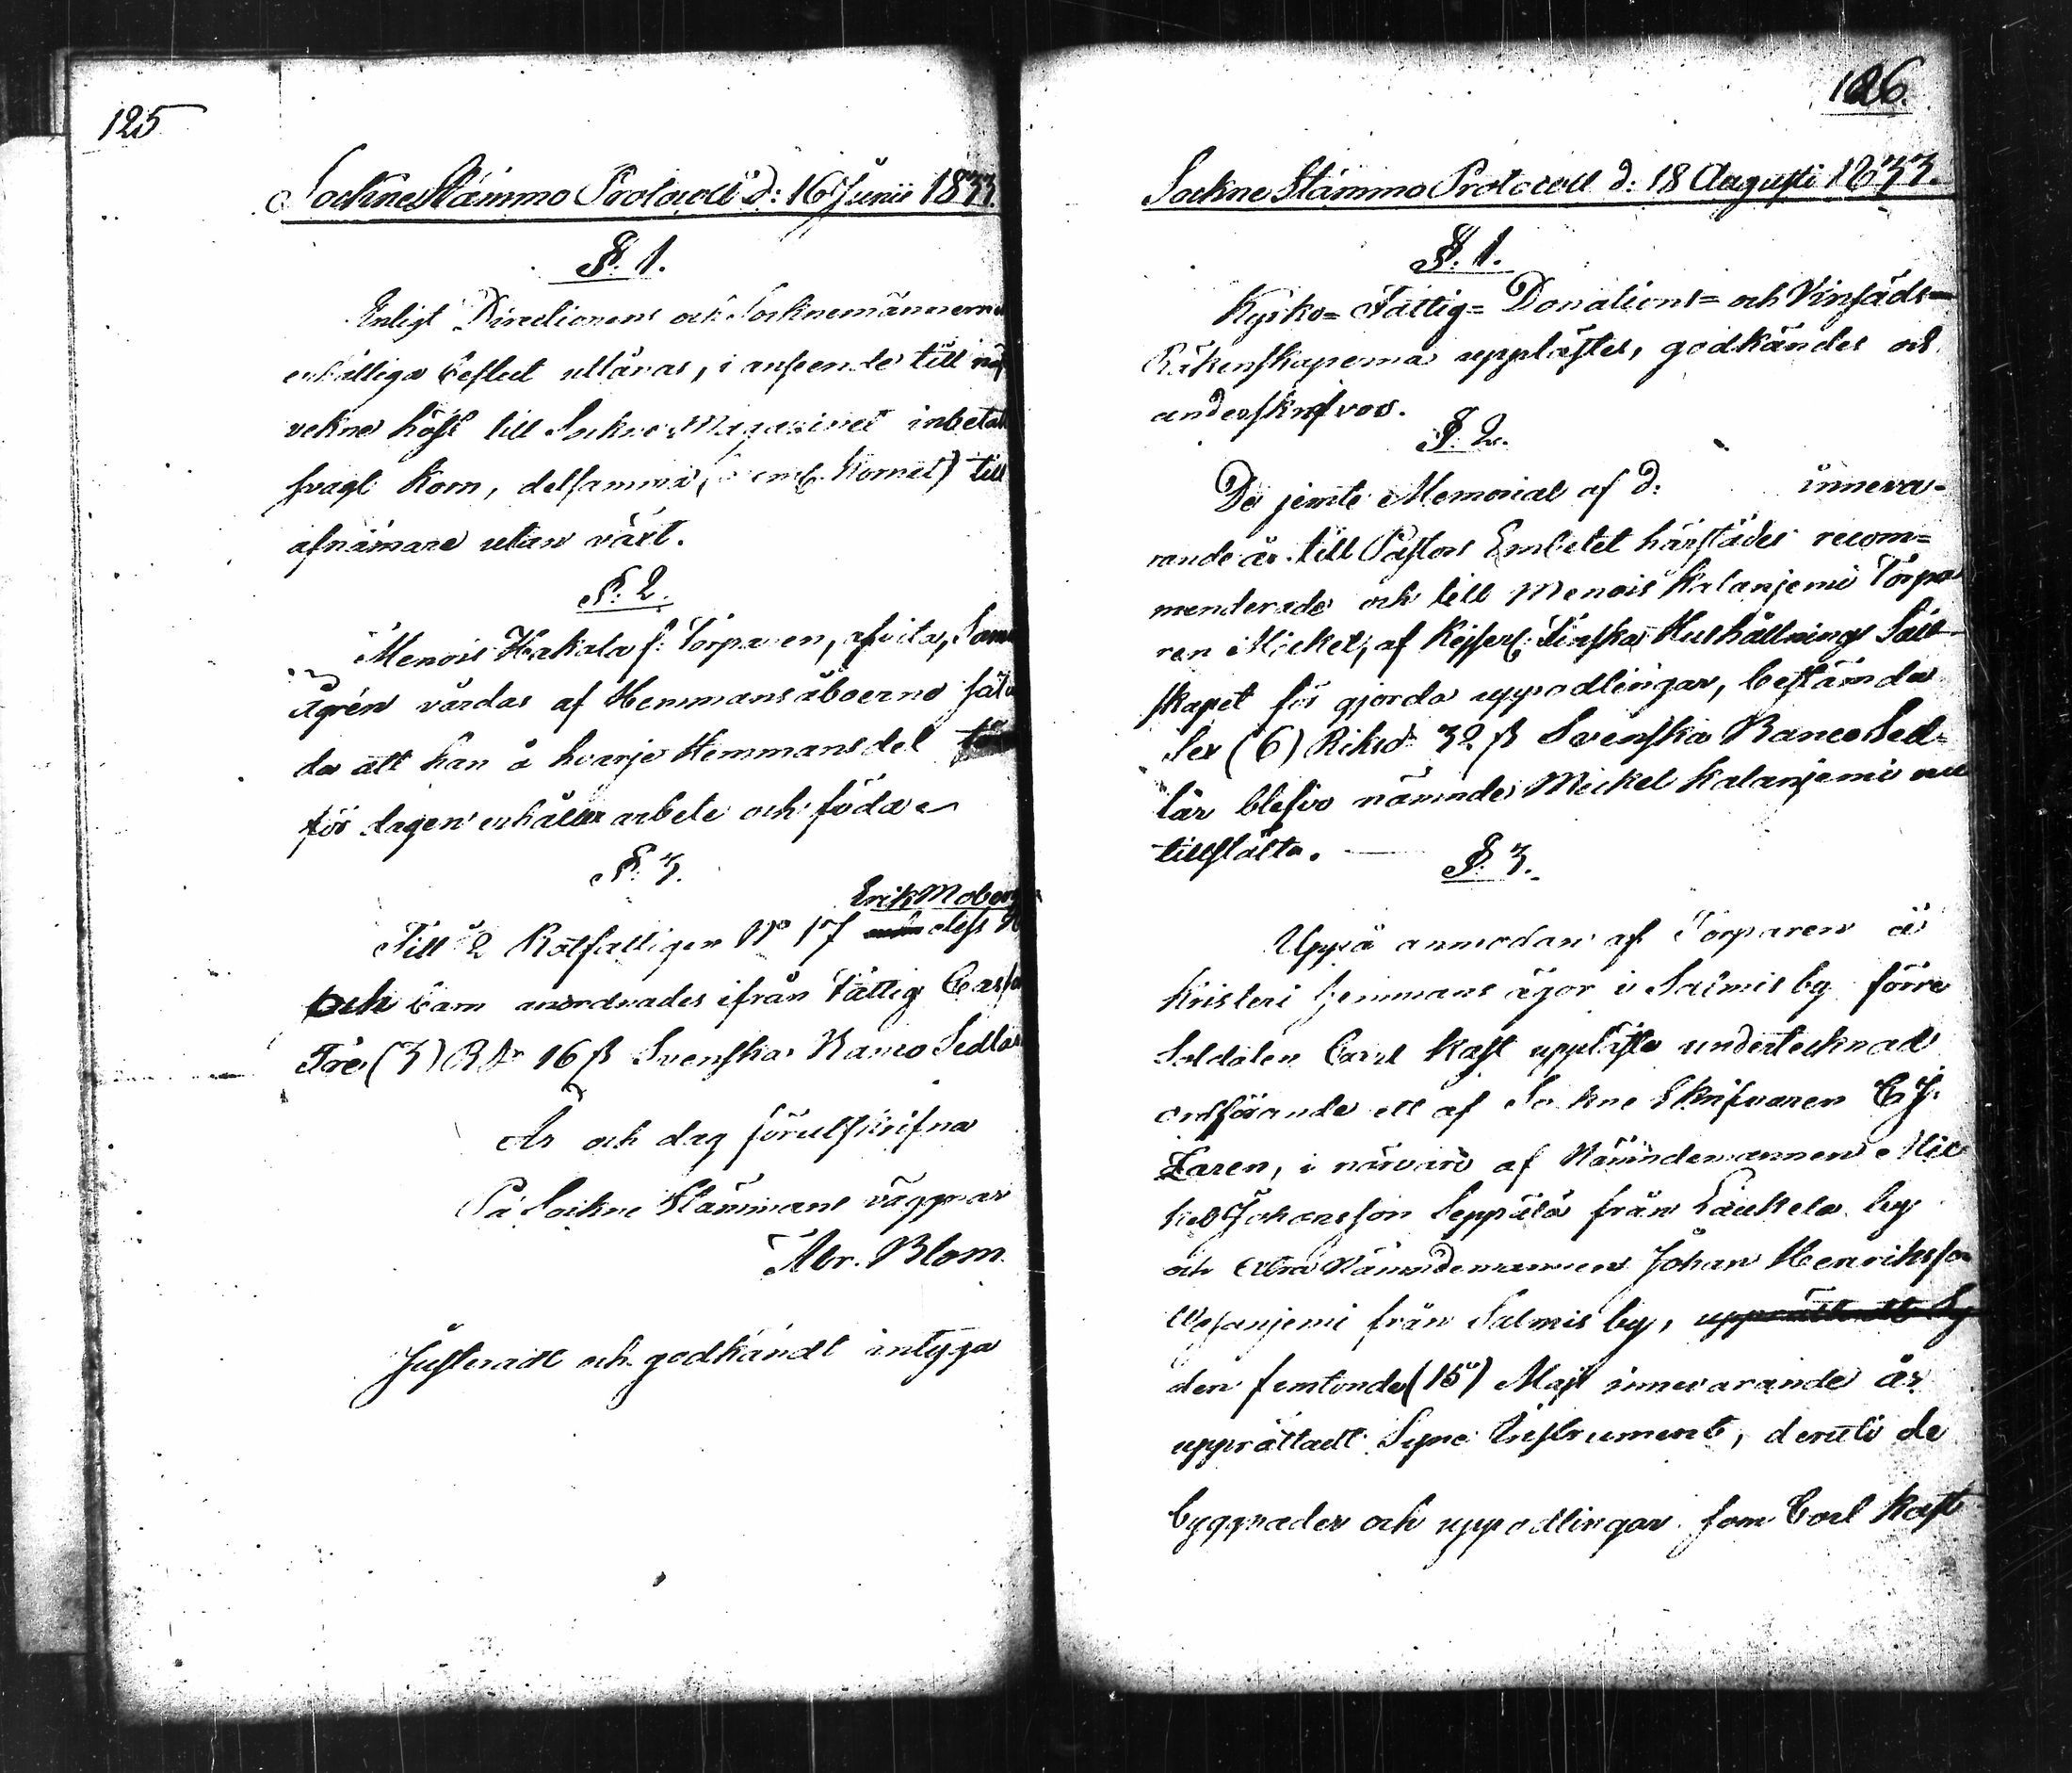 125
Sockne Stämmo Protocoll d: 16 Junii 1833.
§. 1.
Enligt Directionens och Socknemännernes
enhälliga beslut utlånas, i anseende till
höst till Sockne Magasinet
svagt Korn, detsamma, Kornet) till
afnämare utan växt.
§. 2.
Menois Hakala f: Torparen, afvita,
Ågrén vårdas af Hemmansåboerne
da att han å hvarje Hemmansdel
för dagen erhåller arbete och föda
§. 3.
Erik Moberg
Till 2 Rotfattigen No 17
och barn anordnades ifrån Fattig Cassan
Tre (3) R.dr 16 ß Svenska Banco Sedlar
År och dag förutskrifna
På Sockne Stämmans vägnar
Abr. Blom.
Justeradt och godkändt intyga
126.
Sockne Stämmo Protocoll d: 18 Augusti 1833.
§. 1.
Kyrko= Fattig= Donations= och Vinsäds=
Räkenskaperna upplästes, godkändes och
underskrefvos.
§. 2.
De jemte Memorial af d: inneva-
rande år till Pastors Embetet härstädes recom=
menderade och till Menois Kalanjemi Torpa
ren Mickel, af Kejserl: Finska Hushållnings Säll-
skapet för gjorda uppodlingar, bestämda
Sex (6) Riksdr 32 ß Svenska Banco Sed=
lar blefvo nämnde Mickel Kalanjemi nu
tillstälta.
§. 3.
Uppå anmodan af Torparen å
Kristeri hemmans ägor i Salmis by förre
Soldaten Carl Kast uppläste undertecknad
ordförande ett af Sockne Skrifvaren C J.
Laren, i närvaro af Nämndemannen Mic
kel Johansson Seppälä från Laukela by
och Extra Nämndemannen Johan Henriksson
Wesanjemi från Salmis by,
den femtonde (15) Maji innevarande år
upprättadt Syne Instrument, deruti de
byggnader och uppodlingar som Carl Kast